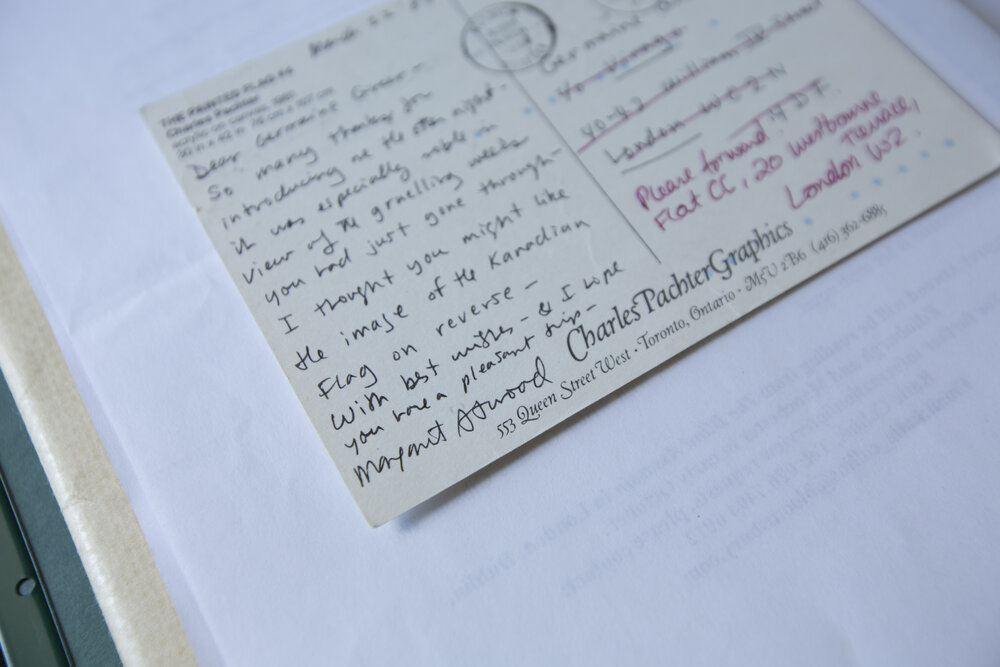 THE PAINTED FLAG
Charles Pachter
acrylic on canvas, 1981
Dear Germaine Greer –
So many thanks for
introducing me the other night.
it was especially noble in
view of the gruelling weeks
you had just gone through –
I thought you might like
the image of the Kanadian
Flag on reverse –
With best wishes – & I hope
you have a pleasant trip –
Margaret Atwood
Germaine
c/o Virago
40-42
London WC2
Please forward
Flat CC, 20 Westbourne
Terrace,
London W2.
CharlesPachterGraphics
553 Queen Street West · Toronto, Ontario · M5V 2B6 (416) 362-6885